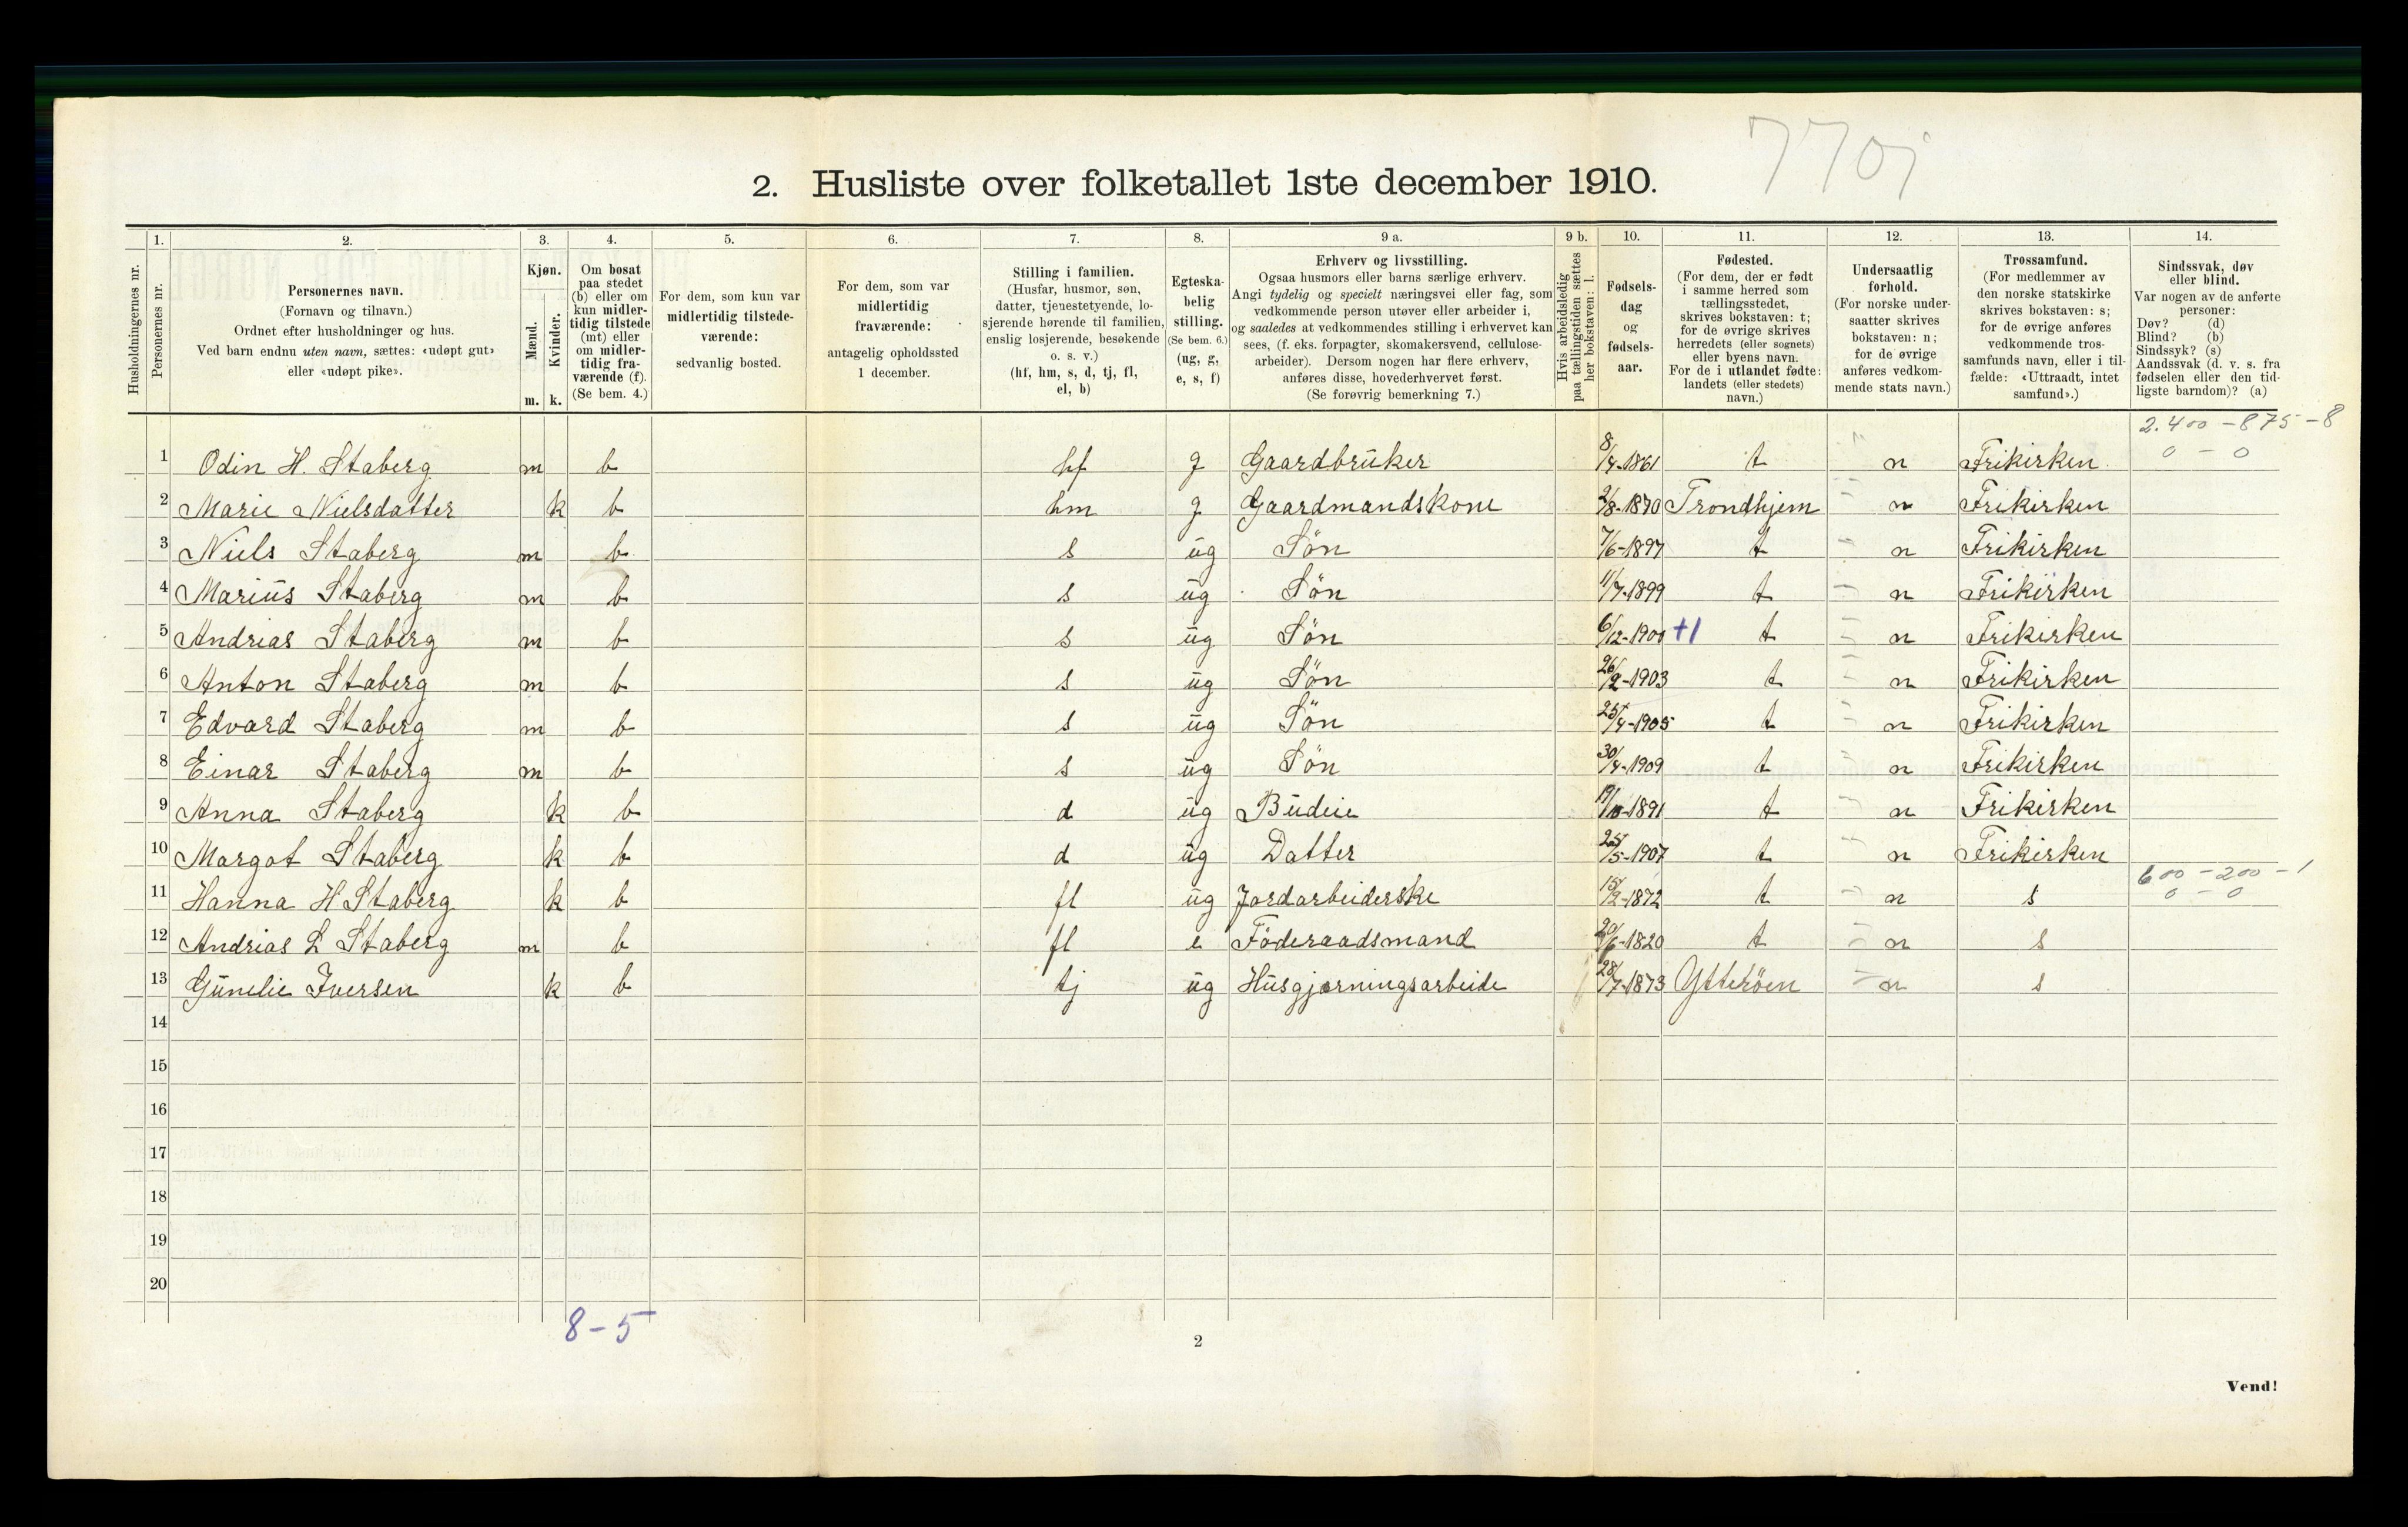 770j
2. Husliste over folketallet 1ste december 1910.
Husholdningernes nr.
1.
Personernes nr.
2.
Personernes navn.
(Fornavn og tilnavn.)
Ordnet efter husholdninger og hus.
Ved barn endnu uten navn, sættes: «udøpt gut»
eller «udøpt pike».
3.
Kjøn.
Mænd.
Kvinder.
m. k.
4.
Om bosat
paa stedet
(b) eller om
kun midler-
tidig tilstede
(mt) eller
om midler-
tidig fra-
værende (f).
(Se bem. 4.)
5.
For dem, som kun var
midlertidig tilstede-
værende:
sedvanlig bosted.
6.
For dem, som var
midlertidig
fraværende:
antagelig opholdssted
1 december.
7.
Stilling i familien.
(Husfar, husmor, søn,
datter, tjenestetyende, lo-
sjerende hørende til familien,
enslig losjerende, besøkende
o. s. v.)
(hf, hm, s, d, tj, fl,
el, b)
8.
Egteska-
belig
stilling.
(Se bem. 6.)
(ug, g,
e, s, f)
9 a.
Erhverv og livsstilling.
Ogsaa husmors eller barns særlige erhverv.
Angi tydelig og specielt næringsvei eller fag, som
vedkommende person utøver eller arbeider i,
og saaledes at vedkommendes stilling i erhvervet kan
sees, (f. eks. forpagter, skomakersvend, cellulose-
arbeider). Dersom nogen har flere erhverv,
anføres disse, hovederhvervet først.
(Se forøvrig bemerkning 7.)
9 b.
Hvis arbeidsledig
paa tællingstiden sættes
her bokstaven: l.
10.
Fødsels-
dag
og
fødsels-
aar.
11.
Fødested.
(For dem, der er født
i samme herred som
tællingsstedet,
skrives bokstaven: t;
for de øvrige skrives
herredets (eller sognets)
eller byens navn.
For de i utlandet fødte:
landets (eller stedets)
navn.)
12.
Undersaatlig
forhold.
(For norske under-
saatter skrives
bokstaven: n;
for de øvrige
anføres vedkom-
mende stats navn.)
13.
Trossamfund.
(For medlemmer av
den norske statskirke
skrives bokstaven: s;
for de øvrige anføres
vedkommende tros-
samfunds navn, eller i til-
fælde: «Uttraadt, intet
samfund».)
14.
Sindssvak, døv
eller blind.
Var nogen av de anførte
personer:
Døv? (d)
Blind? (b)
Sindssyk? (s)
Aandssvak (d. v. s. fra
fødselen eller den tid-
ligste barndom)? (a)
2.400 - 875 - 8
1 Odin H. Staberg m b hf g Gaardbruker 8/4-1861 t n Frikirken 0 - 0
2 Marie Nielsdatter k b hm g Gaardmandskone 2/8-1870 Trondhjem n Frikirken
3 Niels Staberg m b s ug Sön 7/6-1897 t n Frikirken
4 Marius Staberg m b s ug Sön 11/7-1899 t n Frikirken
5 Andrias Staberg m b s ug Sön 6/12-1900 +1 t n Frikirken
6 Anton Staberg m b s ug Sön 26/2-1903 t n Frikirken
7 Edvard Staberg m b s ug Sön 25/4-1905 t n Frikirken
8 Einar Staberg m b s ug Sön 30/4-1909 t n Frikirken
9 Anna Staberg k b d ug Budeie 19/10-1891 t n Frikirken
10 Margot Staberg k b d ug Datter 25/5-1907 t n Frikirken
600 - 200 - 1
11 Hanna H Staberg k b fl ug Jordarbeiderske 15/2-1872 t n s 0 - 0
12 Andrias L Staberg m b fl e Föderaadsmand 20/6-1820 t n s
13 Gunelie Iversen k b tj ug Husgjerningsarbeide 28/7-1873 Ytteröen n s
14
15
16
17
18
19
20
8 - 5
2
Vend!